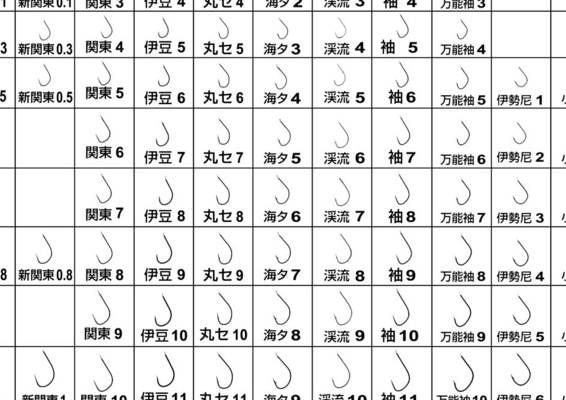 1 新関東0.1 関東3 伊豆4 丸セ4 海タ2 渓流3 袖4 万能袖3
3 新関東0.3 関東4 伊豆5 丸セ5 海タ3 渓流4 袖5 万能袖4
5 新関東0.5 関東5 伊豆6 丸セ6 海タ4 渓流5 袖6 万能袖5 伊勢尼1
関東6 伊豆7 丸セ7 海タ5 渓流6 袖7 万能袖6 伊勢尼2
関東7 伊豆8 丸セ8 海タ6 渓流7 袖8 万能袖7 伊勢尼3
8 新関東0.8 関東8 伊豆9 丸セ9 海タ7 渓流8 袖9 万能袖8 伊勢尼4
関東9 伊豆10 丸セ10 海タ8 渓流9 袖10 万能袖9 伊勢尼5
新関東1 関東10 伊豆11 丸セ11 海タ9 渓流10 袖11 万能袖10 伊勢尼6